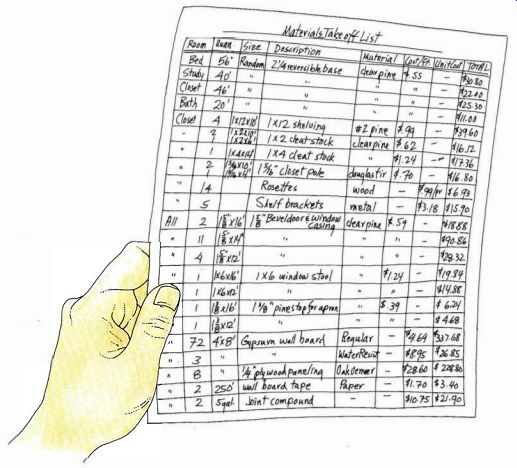 Materials Take off List
Room Quan. Size Description Material Cost/Ft. Unit Cost TOTAL
Bed 56' Random 2¼ reversible base clear pine $.55 - $30.80
Study 40' " " " " - $22.00
Closet 46' " " " " - $25.30
Bath 20' " " " " - $11.00
Closet 4 1x12x10' 1x12 shelving #2 pine $.99 - $39.60
" 2 1x2x10' 1x2 cleat stock clear pine $.62 - $16.12
1x2x6'
" 1 1x4x14' 1x4 cleat stock " $1.24 - $17.36
" 2 1 5/8" closet pole douglas fir $.70 - $16.80
" 14 Rosettes wood - $.99/pr $6.93
" 5 Shelf brackets metal - $3.18 $15.90
All 2 1⅝"x16' 1⅝" Bevel door & window casing clear pine $.59 - $18.88
" 11 1⅝"x14' " " " - $90.86
" 4 1⅝"x12' " " " - $28.32
" 1 1x6x16' 1x6 window stool " $1.24 - $19.84
1 1x6x12' " " " - $14.88
1 1⅜x16' 1⅜" pine stop for apron " $.39 - $6.24
1 1⅜x12' " " " - $4.68
" 72 4x8' Gypsum wall board Regular - $4.64 $337.68
" 3 " " Water Resist - $8.95 $26.85
" 8 " ¼" plywood paneling Oak Veneer - $28.60 $228.80
" 2 250' wall board tape Paper - $1.70 $3.40
" 2 5 gal. Joint compound - - $10.75 $21.90